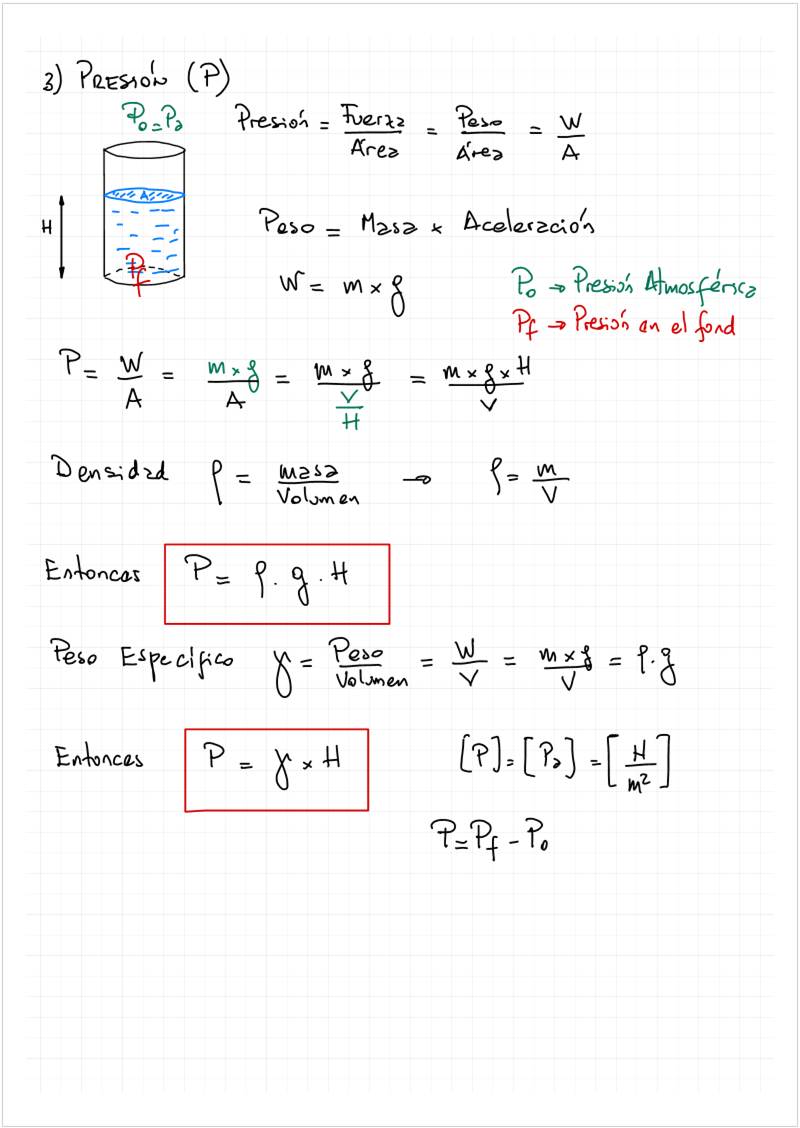 3) PRESIÓN (P)
P₀ = Pa
Presión = Fuerza/Área = Peso/Área = W/A
A
H
Pf
Peso = Masa × Aceleración
W = m × g
P₀ → Presión Atmosférica
Pf → Presión en el fond
P = W/A = (m × g)/A = (m × g)/(V/H) = (m × g × H)/V
Densidad ρ = masa/Volumen → ρ = m/V
Entonces P = ρ . g . H
Peso Específico γ = Peso/Volumen = W/V = (m × g)/V = ρ . g
Entonces P = γ × H [P] = [Pa] = [N/m²]
P = Pf - P₀